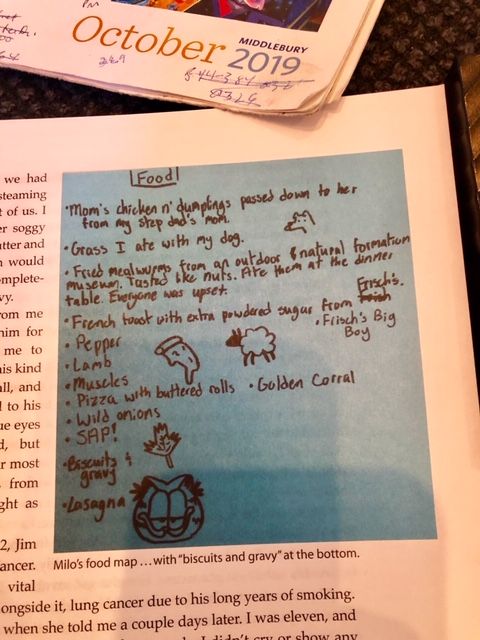 PM
October MIDDLEBURY
2019
Food
•Mom's chicken n' dumplings passed down to her
from my step dad's mom.
•Grass I ate with my dog.
•Fried mealworms from an outdoor & natural formation
museum. Tasted like nuts. Ate them at the dinner
table. Everyone was upset.
•French toast with extra powdered sugar from Frisch's.
•Frisch's Big
Boy
•Pepper
•Lamb
•Muscles
•Pizza with buttered rolls •Golden Corral
•Wild onions
•SAP!
•Biscuits &
gravy
•Lasagna
Milo's food map ... with "biscuits and gravy" at the bottom.
we had
steaming
t of us. I
er soggy
utter and
would
mplete-
vy.
rom me
him for
me to
is kind
all, and
l to his
ue eyes
d, but
r most
from
ght as
2, Jim
ancer.
vital
ongside it, lung cancer due to his long years of smoking.
when she told me a couple days later. I was eleven, and
didn't cry or show any